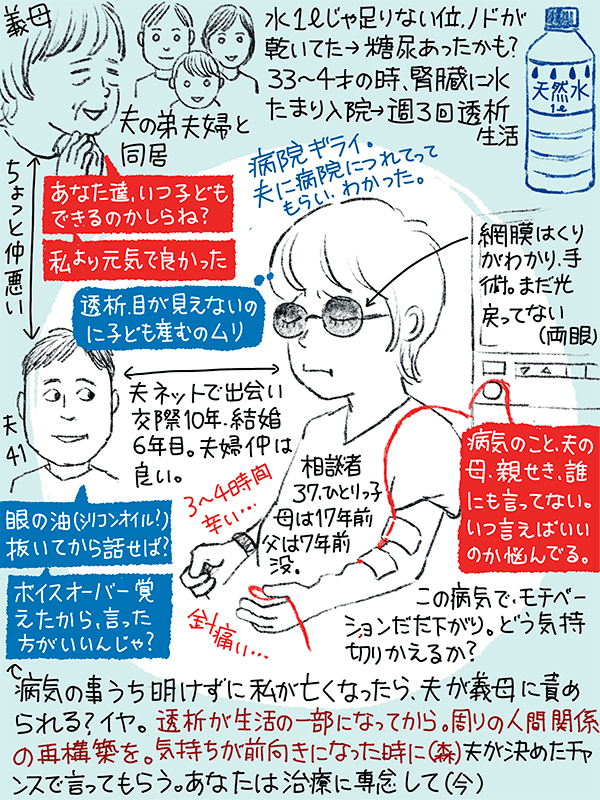 義母
夫の弟夫婦と
同居
水1ℓじゃ足りない位、ノドが
乾いてた→糖尿あったかも?
33〜4才の時、腎臓に水
たまり入院→週3回透析
生活
天然水
1ℓ
あなた達、いつ子ども
できるのかしらね?
私より元気で良かった
ちょっと仲悪い
病院ギライ。
夫に病院につれてって
もらい、わかった。
透析、目が見えないの
に子ども産むのムリ
網膜はくり
がわかり、手
術。まだ光
戻ってない
(両眼)
夫41
夫ネットで出会い
交際10年、結婚
6年目。夫婦仲は
良い。
相談者
37、ひとりっ子
母は17年前
父は7年前
没。
3〜4時間
辛い…
針痛い…
病気のこと、夫の
母、親せき、誰
にも言ってない。
いつ言えばいい
のか悩んでる。
眼の油(シリコンオイル?)
抜いてから話せば?
ボイスオーバー覚
えたから、言った
方がいいんじゃ?
この病気で、モチベー
ションだだ下がり。どう気持
切りかえるか?
病気の事うち明けずに私が亡くなったら、夫が義母に責め
られる?イヤ。透析が生活の一部になってから。周りの人間関係
の再構築を。気持ちが前向きになった時に(森)夫が決めたチャ
ンスで言ってもらう。あなたは治療に専念して(今)